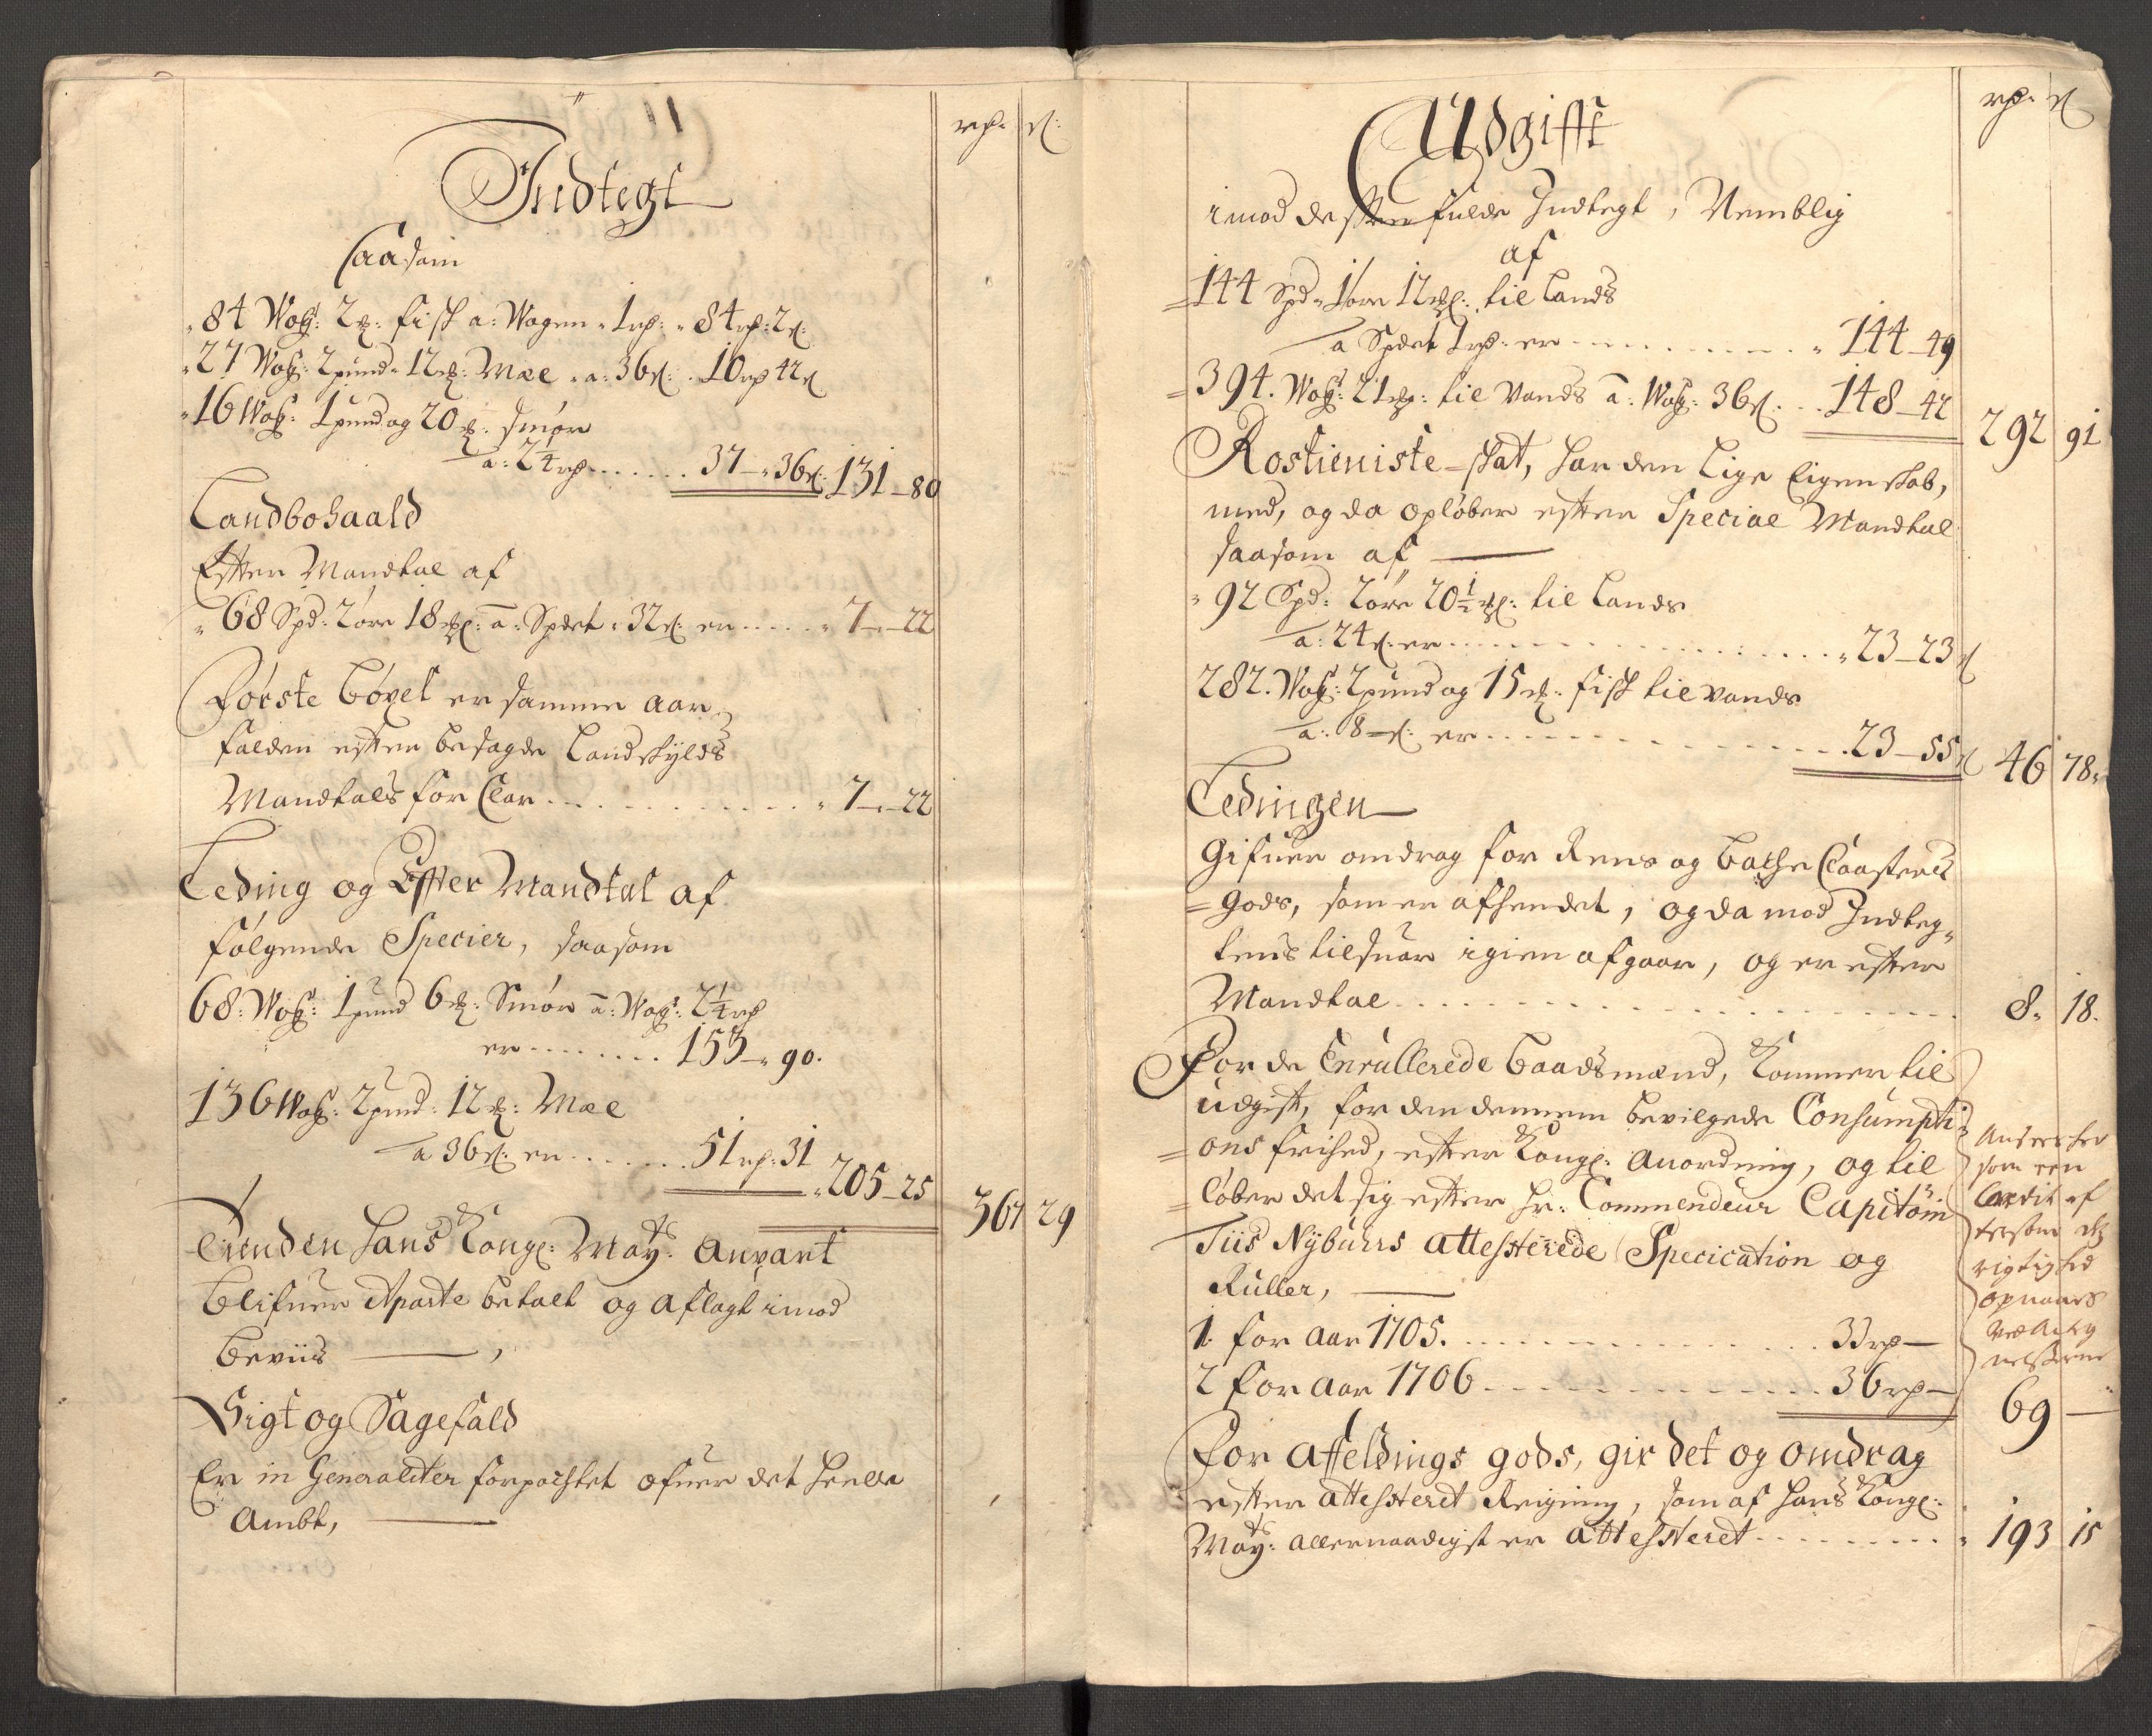 rd: s:
Indtegt
Saasom
84 Wog: 2 p: fisk a: Wogen 1 rd: 84 rd: 2 s:
27 Wog: 2 pund 12 m: Mæl a: 36 s: 10 rd 42 s
16 Wog: 1 pund og 20 m: smør
a: 2¼ rd ...... 37 - 36 s: 131 - 80
Landbohaald
Efter Mandtal af
68 Spd: 2 øre 18 m: a: Spdet 32 s: er ..... 7 - 22
Første Bøxel er samme aar
falden efter besagde Landskylds
Mandtals for Clar ............ 7 - 22
Leding og Effter Mandtal af
følgende Specier, saasom
68: Wog: 1 pund 6 m: Smør a: Wog: 2¼ rd
er ........ 153 - 90.
136 Wog: 2 pund: 12 m: Mæl
a 36 s: er ....... 51 rd: 31
205 - 25
367 29
Tienden Hans Kongl: Mayts: Anpart
Blifuer Aparte betalt og aflagt imod
Beviis
Sigt og Sagefald
Er in Generaliter forpachtet ofuer det heele
Ambt,
rd: s
Udgifft
imod desten fulde Indtegt, Nemblig
af
144 Spd 1 øre 12 m: til Lands
a Spdet 1 rd: er ............ 144 - 49
394. Wog: 21 m: til Vands a: Wog: 36 s: .. 148 - 42
292 91
Rostieniste-skat, har den Lige Eigenskab,
med, og da opløber efter Special Mandtal
saasom af
92 Spd: 2 øre 20½ m: til Lands
a: 24 s: er ................ 23 - 23 s
282. Wog: 2 pund og 15 m: fisk til vands
a: 8 s: er ............... 23 - 55 s
46 78
Ledingen
Gifuer omdrag for Rens og Bache Closters
Gods, som er afhendet, og da mod Indteg-
tens tilsuar igien afgaar, og er efter
Mandtal ..................... 8. 18.
For de Enrullerede Baadsmænd, Kommer til
udgift, for den dennem bevilgede Consumpti-
ons frihed, efter Kongl: Anordning, og til
løber det sig efter Hr: Commendeur Capitain
Tiis Nyburs attesterede Specication og
Ruller,
1 for Aar 1705. ............... 33 rd -
2 for Aar 1706 ............. 36 rd -
69 -
rigtighed
For Affeldings gods, gir det og omdrag
efter attesteret Reigning, som af Hans Kongl:
Mayts: allernaadigst er attesteret ......... 193 15